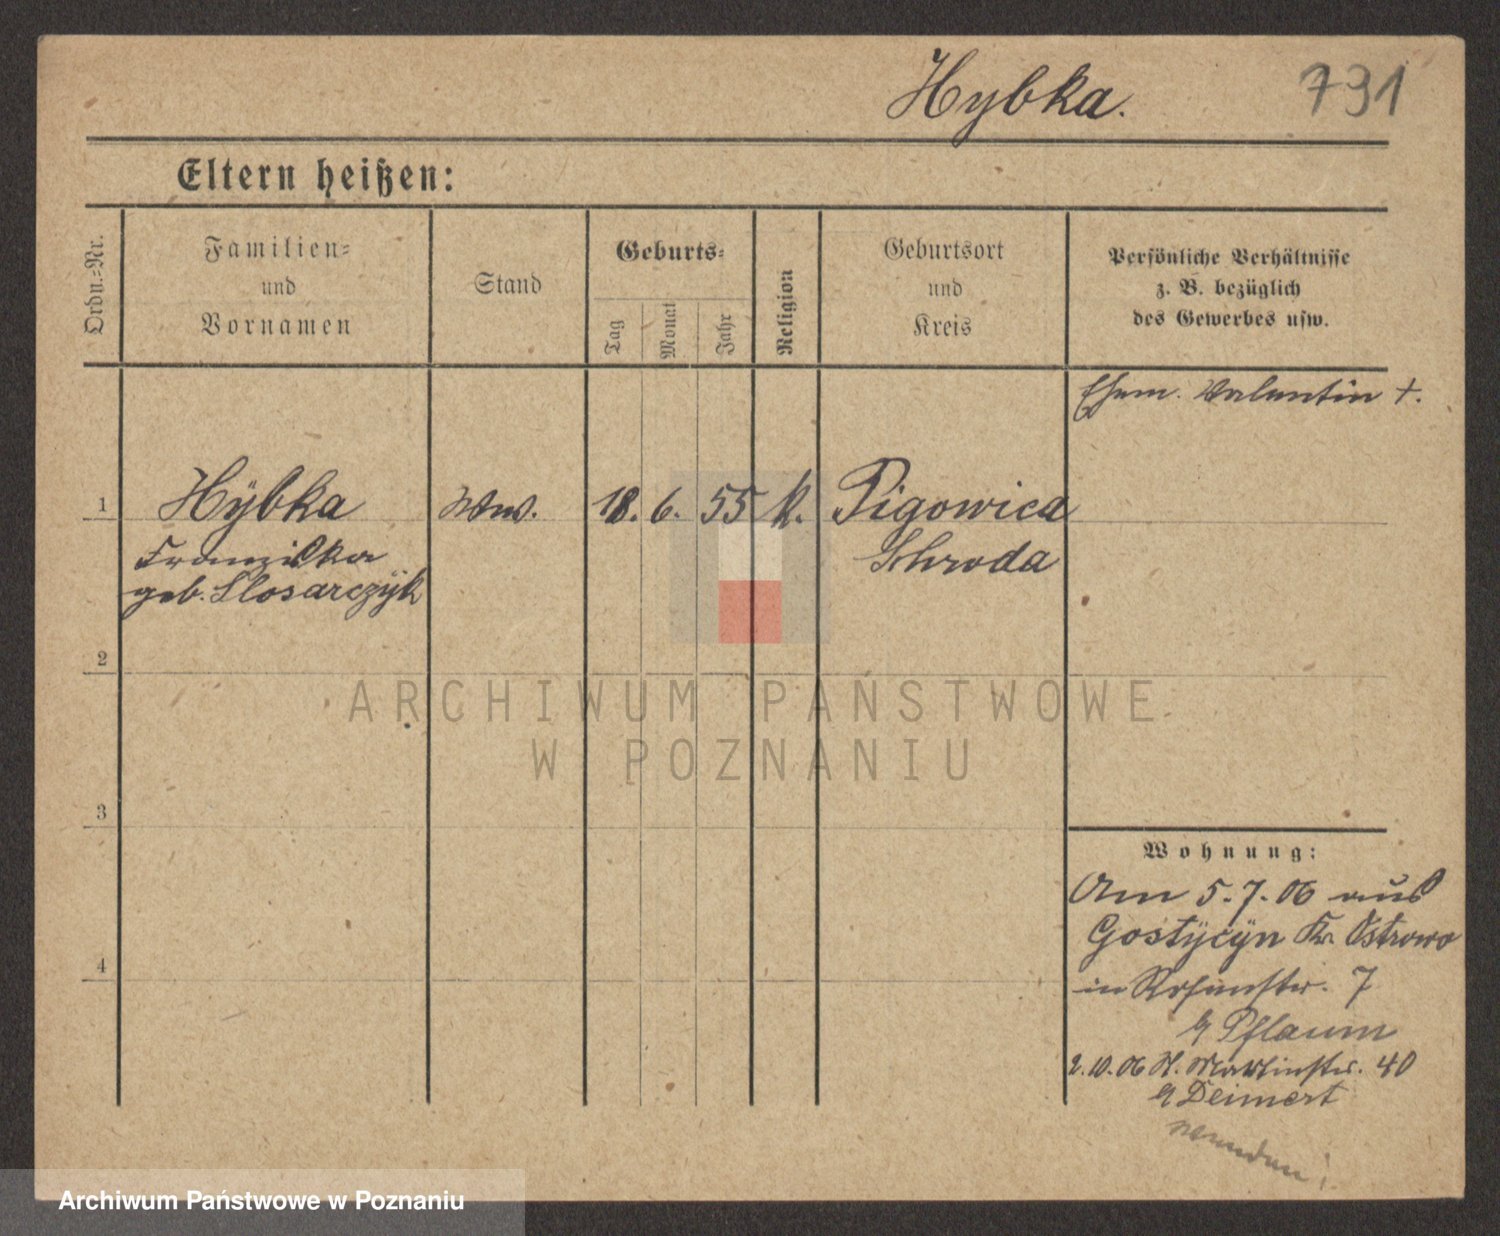 Hybka.
731
Eltern heißen:
Ordn.=Nr.
Familien=
und
Vornamen
Stand
Geburts=
Tag
Monat
Jahr
Religion
Geburtsort
und
Kreis
Persönliche Verhältnisse
z. B. bezüglich
des Gewerbes usw.
Ehem. Valentin †.
1
Hÿbka
Ww.
18. 6. 55
k.
Pigowica
Schroda
Franziska
geb. Slosarczÿk
2
3
4
ARCHIWUM PAŃSTWOWE
W POZNANIU
Wohnung:
Am 5.7.06 aus
Gostÿcÿn Kr. Ostrowo
in 7
Pflaum
2.10.06 St. Martinstr. 40
Deimert
Archiwum Państwowe w Poznaniu